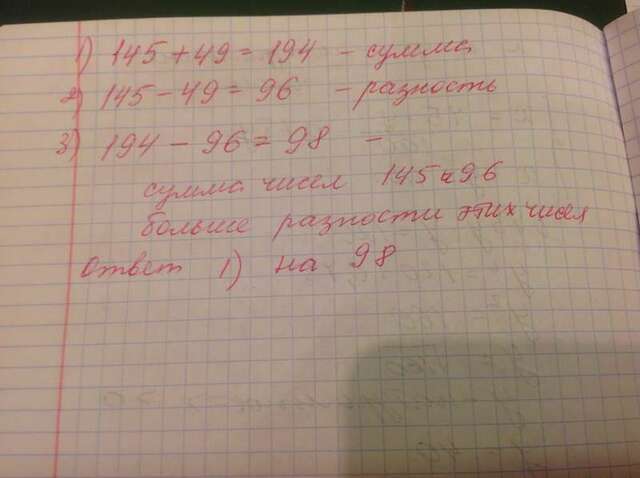 1) 145 + 49 = 194 - сумма
2) 145 - 49 = 96 - разность
3) 194 - 96 = 98 -
сумма чисел 145 и 96
больше разности этих чисел
Ответ 1) на 98